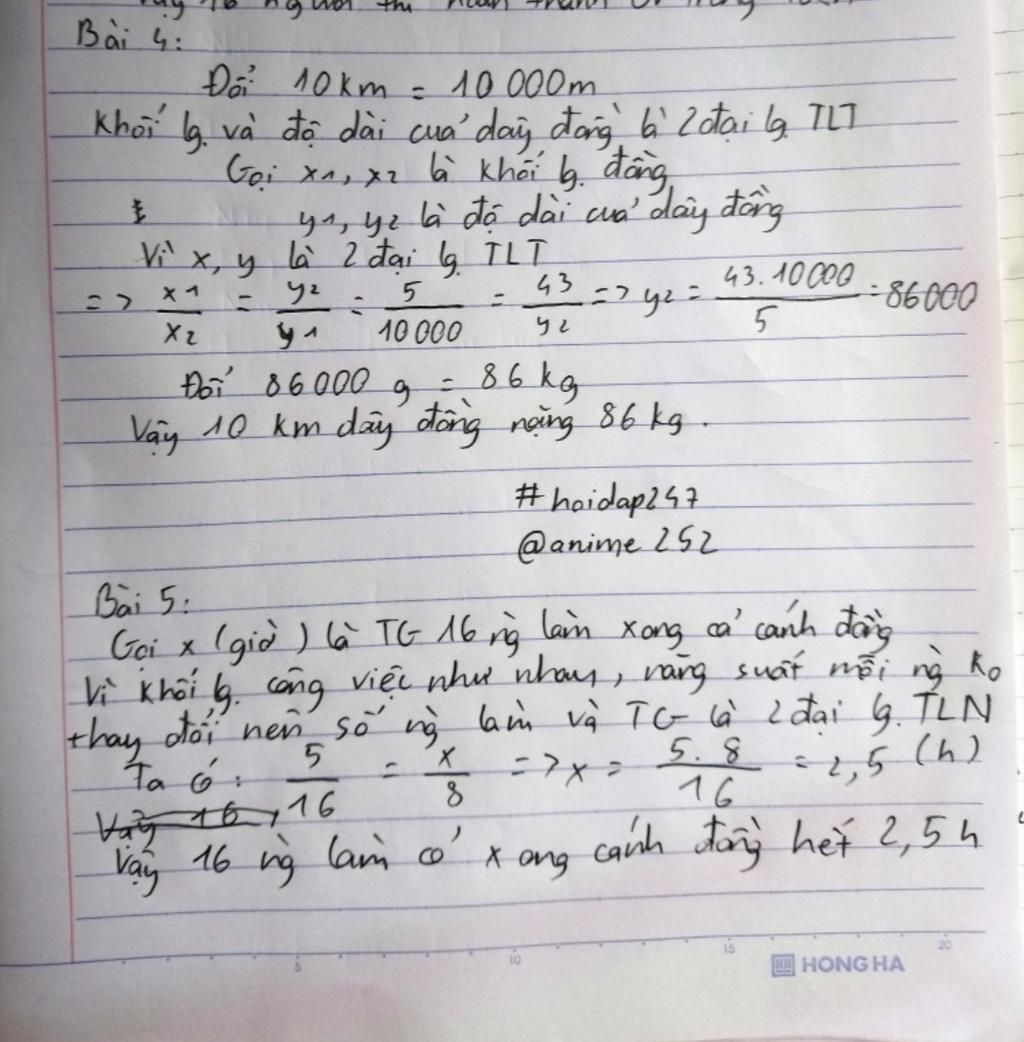 Vậy 16 người thì hoàn thành
Bài 4:
Đổi 10 km = 10 000m
Khối lg. và độ dài của dây đồng là 2 đại lg. TLT
Gọi x1, x2 là khối lg. đồng
y1, y2 là độ dài của dây đồng
Vì x, y là 2 đại lg. TLT
=> x1/x2 = y2/y1 = 5/10 000 = 43/y2 => y2 = 43.10000/5 = 86000
Đổi 86000 g = 86 kg
Vậy 10 km dây đồng nặng 86 kg.
#hoidap247
@anime 252
Bài 5:
Gọi x (giờ) là TG 16 ng̀ làm xong cả cánh đồng
Vì khối lg. công việc như nhau, năng suất mỗi ng̀ ko
thay đổi nên số ng̀ làm và TG là 2 đại lg. TLN
Ta có: 5/16 = x/8 => x = 5.8/16 = 2,5 (h)
Vậy 16,
Vậy 16 ng̀ làm cỏ xong cánh đồng hết 2,5h
5 10 15 20
HONG HA